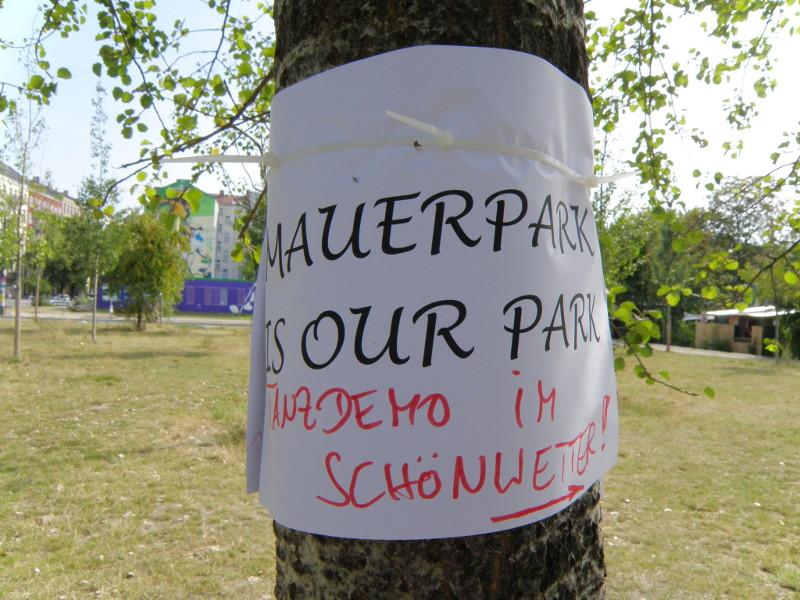 MAUERPARK
IS OUR PARK
TANZDEMO IM
SCHÖNWETTER!